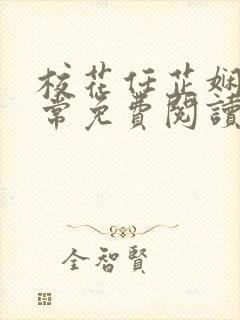 校花任芷娴
常免费閱讀
全智賢